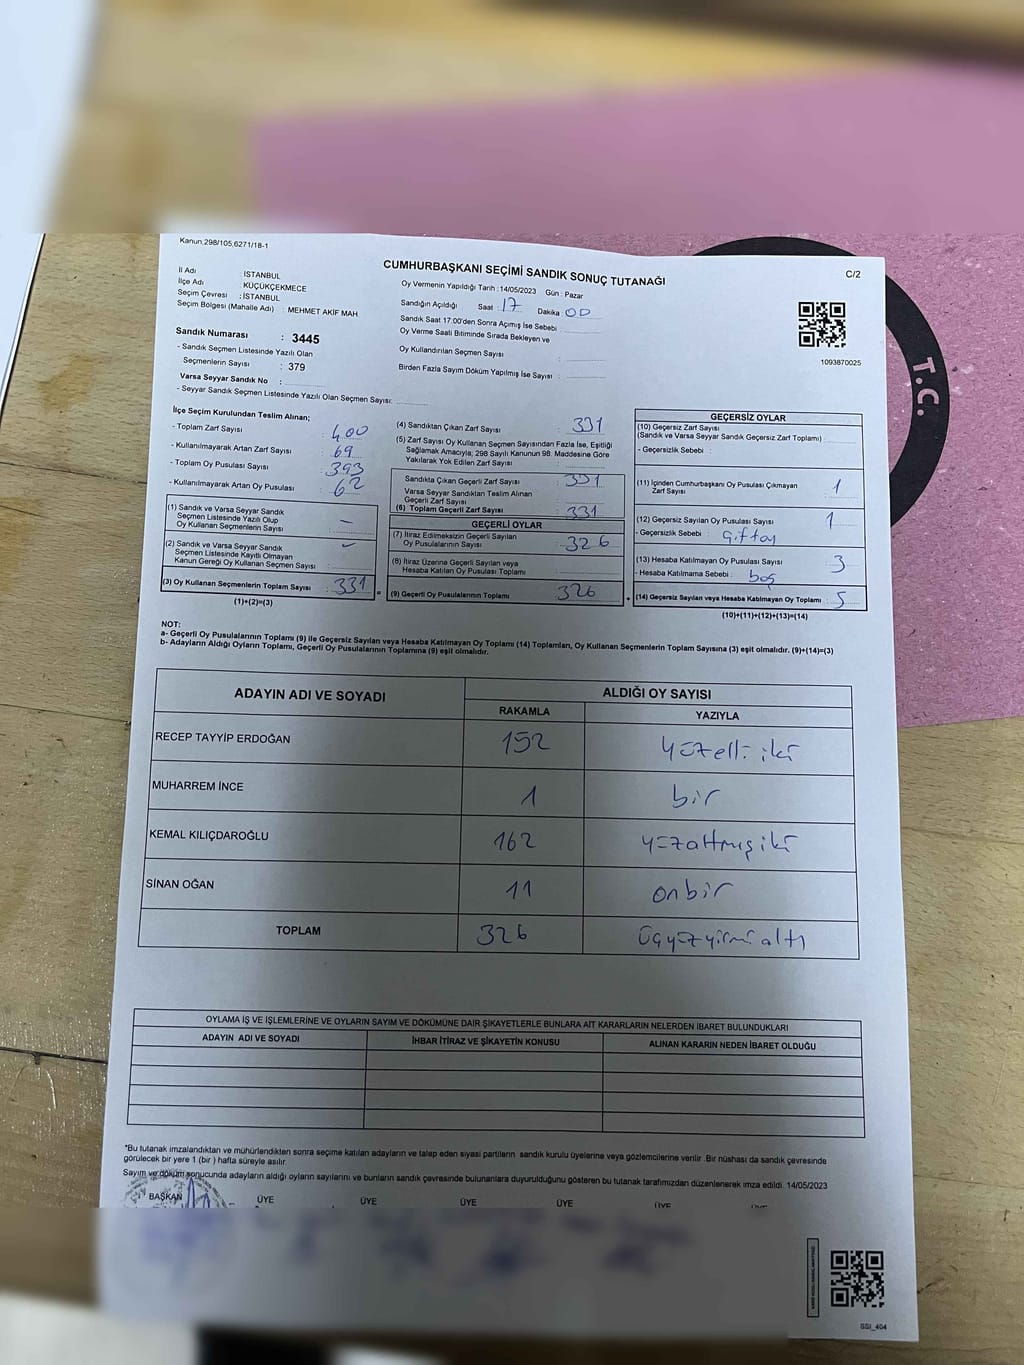 Kanun.298/105,6271/18-1
CUMHURBAŞKANI SEÇİMİ SANDIK SONUÇ TUTANAĞI
C/2
İl Adı : İSTANBUL
İlçe Adı : KÜÇÜKÇEKMECE
Seçim Çevresi : İSTANBUL
Seçim Bölgesi (Mahalle Adı) : MEHMET AKİF MAH.
Sandık Numarası : 3445
- Sandık Seçmen Listesinde Yazılı Olan
Seçmenlerin Sayısı : 379
Varsa Seyyar Sandık No :
- Seyyar Sandık Seçmen Listesinde Yazılı Olan Seçmen Sayısı:
Oy Vermenin Yapıldığı Tarih : 14/05/2023 Gün : Pazar
Sandığın Açıldığı Saat : 17 Dakika : 00
Sandık Saat 17:00'den Sonra Açımış İse Sebebi :
Oy Verme Saati Bitiminde Sırada Bekleyen ve
Oy Kullandırılan Seçmen Sayısı :
Birden Fazla Sayım Döküm Yapılmış İse Sayısı :
1093870025
İlçe Seçim Kurulundan Teslim Alınan;
- Toplam Zarf Sayısı : 400
- Kullanılmayarak Artan Zarf Sayısı : 69
- Toplam Oy Pusulası Sayısı : 393
- Kullanılmayarak Artan Oy Pusulası : 62
(1) Sandık ve Varsa Seyyar Sandık
Seçmen Listesinde Yazılı Olup
Oy Kullanan Seçmenlerin Sayısı : -
(2) Sandık ve Varsa Seyyar Sandık
Seçmen Listesinde Kayıtlı Olmayan
Kanun Gereği Oy Kullanan Seçmen Sayısı : -
(3) Oy Kullanan Seçmenlerin Toplam Sayısı : 331
(1)+(2)=(3)
(4) Sandıktan Çıkan Zarf Sayısı : 331
(5) Zarf Sayısı Oy Kullanan Seçmen Sayısından Fazla İse, Eşitliği
Sağlamak Amacıyla; 298 Sayılı Kanunun 98. Maddesine Göre
Yakılarak Yok Edilen Zarf Sayısı :
Sandıkta Çıkan Geçerli Zarf Sayısı : 331
Varsa Seyyar Sandıktan Teslim Alınan
Geçerli Zarf Sayısı :
(6) Toplam Geçerli Zarf Sayısı : 331
GEÇERLİ OYLAR
(7) İtiraz Edilmeksizin Geçerli Sayılan
Oy Pusulalarının Sayısı : 326
(8) İtiraz Üzerine Geçerli Sayılan veya
Hesaba Katılan Oy Pusulası Toplamı :
(9) Geçerli Oy Pusulalarının Toplamı : 326
GEÇERSİZ OYLAR
(10) Geçersiz Zarf Sayısı
(Sandık ve Varsa Seyyar Sandık Geçersiz Zarf Toplamı) :
- Geçersizlik Sebebi :
(11) İçinden Cumhurbaşkanı Oy Pusulası Çıkmayan
Zarf Sayısı : 1
(12) Geçersiz Sayılan Oy Pusulası Sayısı : 1
- Geçersizlik Sebebi : çift oy
(13) Hesaba Katılmayan Oy Pusulası Sayısı : 3
- Hesaba Katılmama Sebebi : boş
(14) Geçersiz Sayılan veya Hesaba Katılmayan Oy Toplamı : 5
(10)+(11)+(12)+(13)=(14)
NOT:
a- Geçerli Oy Pusulalarının Toplamı (9) ile Geçersiz Sayılan veya Hesaba Katılmayan Oy Toplamı (14) Toplamları, Oy Kullanan Seçmenlerin Toplam Sayısına (3) eşit olmalıdır. (9)+(14)=(3)
b- Adayların Aldığı Oyların Toplamı, Geçerli Oy Pusulalarının Toplamına (9) eşit olmalıdır.
ADAYIN ADI VE SOYADI ALDIĞI OY SAYISI
RAKAMLA YAZIYLA
RECEP TAYYİP ERDOĞAN 152 yüzelli iki
MUHARREM İNCE 1 bir
KEMAL KILIÇDAROĞLU 162 yüzaltmış iki
SİNAN OĞAN 11 onbir
TOPLAM 326 üçyüzyirmi altı
OYLAMA İŞ VE İŞLEMLERİNE VE OYLARIN SAYIM VE DÖKÜMÜNE DAİR ŞİKAYETLERLE BUNLARA AİT KARARLARIN NELERDEN İBARET BULUNDUKLARI
ADAYIN ADI VE SOYADI İHBAR İTİRAZ VE ŞİKAYETİN KONUSU ALINAN KARARIN NEDEN İBARET OLDUĞU
*Bu tutanak imzalandıktan ve mühürlendikten sonra seçime katılan adayların ve talep eden siyasi partilerin sandık kurulu üyelerine veya gözlemcilerine verilir .Bir nüshası da sandık çevresinde
görülecek bir yere 1 (bir ) hafta süreyle asılır.
Sayım ve döküm sonucunda adayların aldığı oyların sayılarını ve bunların sandık çevresinde bulunanlara duyurulduğunu gösteren bu tutanak tarafımızdan düzenlenerek imza edildi. 14/05/2023
BAŞKAN ÜYE ÜYE ÜYE ÜYE ÜYE
SSI_404
T.C.